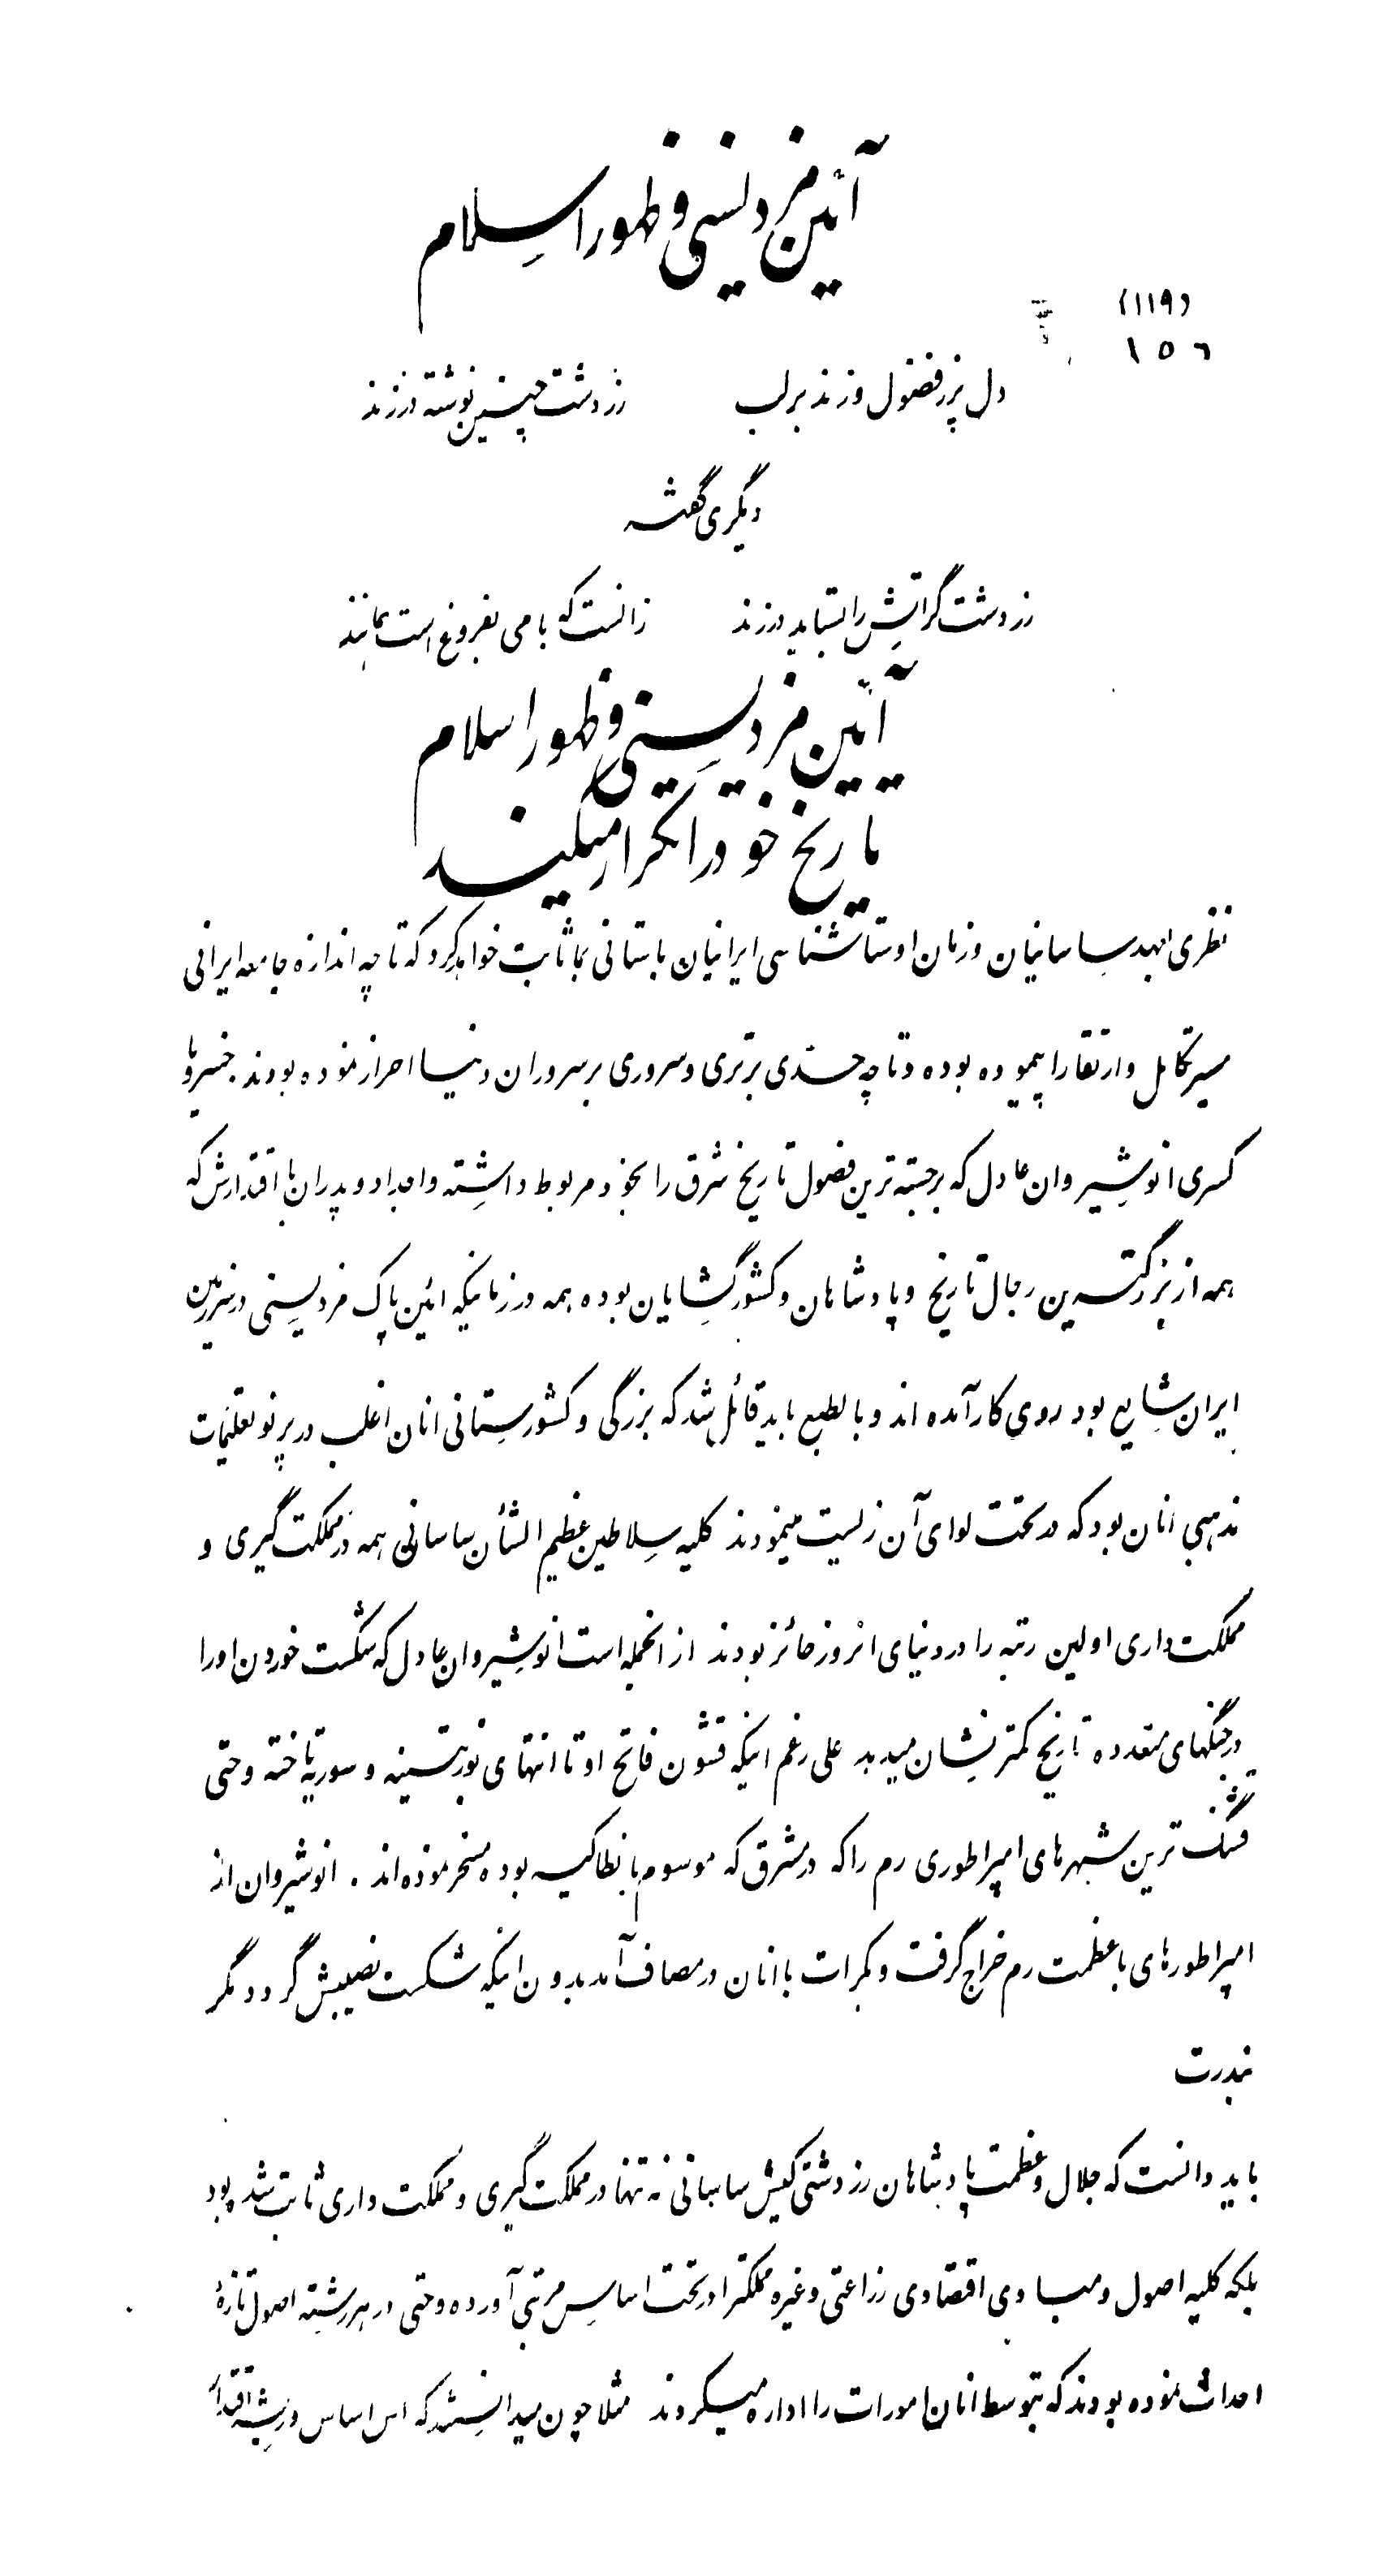 آئین مزدیسنی و ظهور اسلام
(۱۱۹)
۱۵۶
دل پر ز فضول و زند بر لب    زردشت چنین نوشته در زند
دیگری گفته
زردشت گر آتش را بستاید در زند    زانست که با می بفروغ است بمانند
آئین مزدیسنی و ظهور اسلام
تاریخ خود را تکرار میکند
نظری بعهد ساسانیان و زمان اوستا شناسی ایرانیان باستانی بما ثابت خواهد کرد که تا چه اندازه جامعه ایرانی
سیر تکامل و ارتقا را پیموده بوده و تا چه حدی برتری و سروری بر سروران دنیا احراز نموده بودند خسرو یا
کسری انوشیروان عادل که برجسته ترین فصول تاریخ شرق را بخود مربوط داشته و اجداد و پدران با اقتدارش که
همه از بزرگترین رجال تاریخ و پادشاهان و کشورگشایان بوده همه در زمانیکه ائین پاک مزدیسنی در سرزمین
ایران شایع بود روی کار آمده اند و بالطبع باید قائل شد که بزرگی و کشورستانی انان اغلب در پرتو تعلیمات
مذهبی انان بود که در تحت لوای آن زیست مینمودند کلیه سلاطین عظیم الشأن ساسانی همه در مملکت گیری و
مملکت داری اولین رتبه را در دنیای انروز حائز بودند از انجمله است انوشیروان عادل که شکست خوردن اورا
در جنگهای متعدده تاریخ کمتر نشان میدهد علی رغم اینکه قشون فاتح او تا انتهای سوریه تاخته و حتی
قشنگ ترین شهرهای امپراطوری رم را که در مشرق که موسوم بانطاکیه بوده مسخر نموده اند . انوشیروان از
امپراطورهای با عظمت رم خراج گرفت و بکرات با انان در مصاف آمد بدون اینکه شکست نصیبش گردد مگر
بندرت
باید دانست که جلال و عظمت پادشاهان زردشتی کیش ساسانی نه تنها در مملکت گیری و مملکت داری ثابت شده بود
بلکه کلیه اصول و مبادی اقتصادی زراعتی و غیره مملکترا در تحت اساس مرتبی آورده و حتی در هر رشته اصول تازهٔ
احداث نموده بودند که بتوسط انان امورات را اداره میکردند مثلا چون میدانستند که اس اساس و ریشه اقتدار